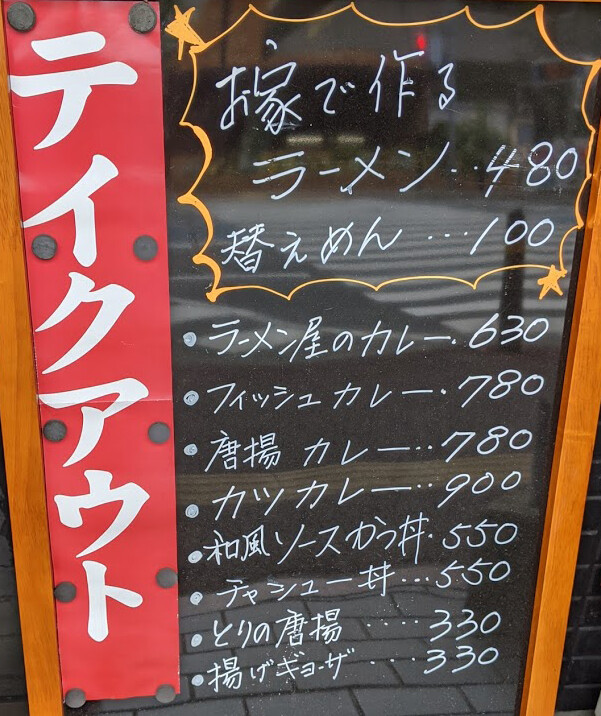 テイクアウト
お家で作る
ラーメン‥480
替えめん…100
・ラーメン屋のカレー・630
・フィッシュカレー・780
・唐揚カレー‥780
・カツカレー‥900
・和風ソースかつ丼・550
・チャーシュー丼…550
・とりの唐揚‥‥330
・揚げギョーザ‥‥330